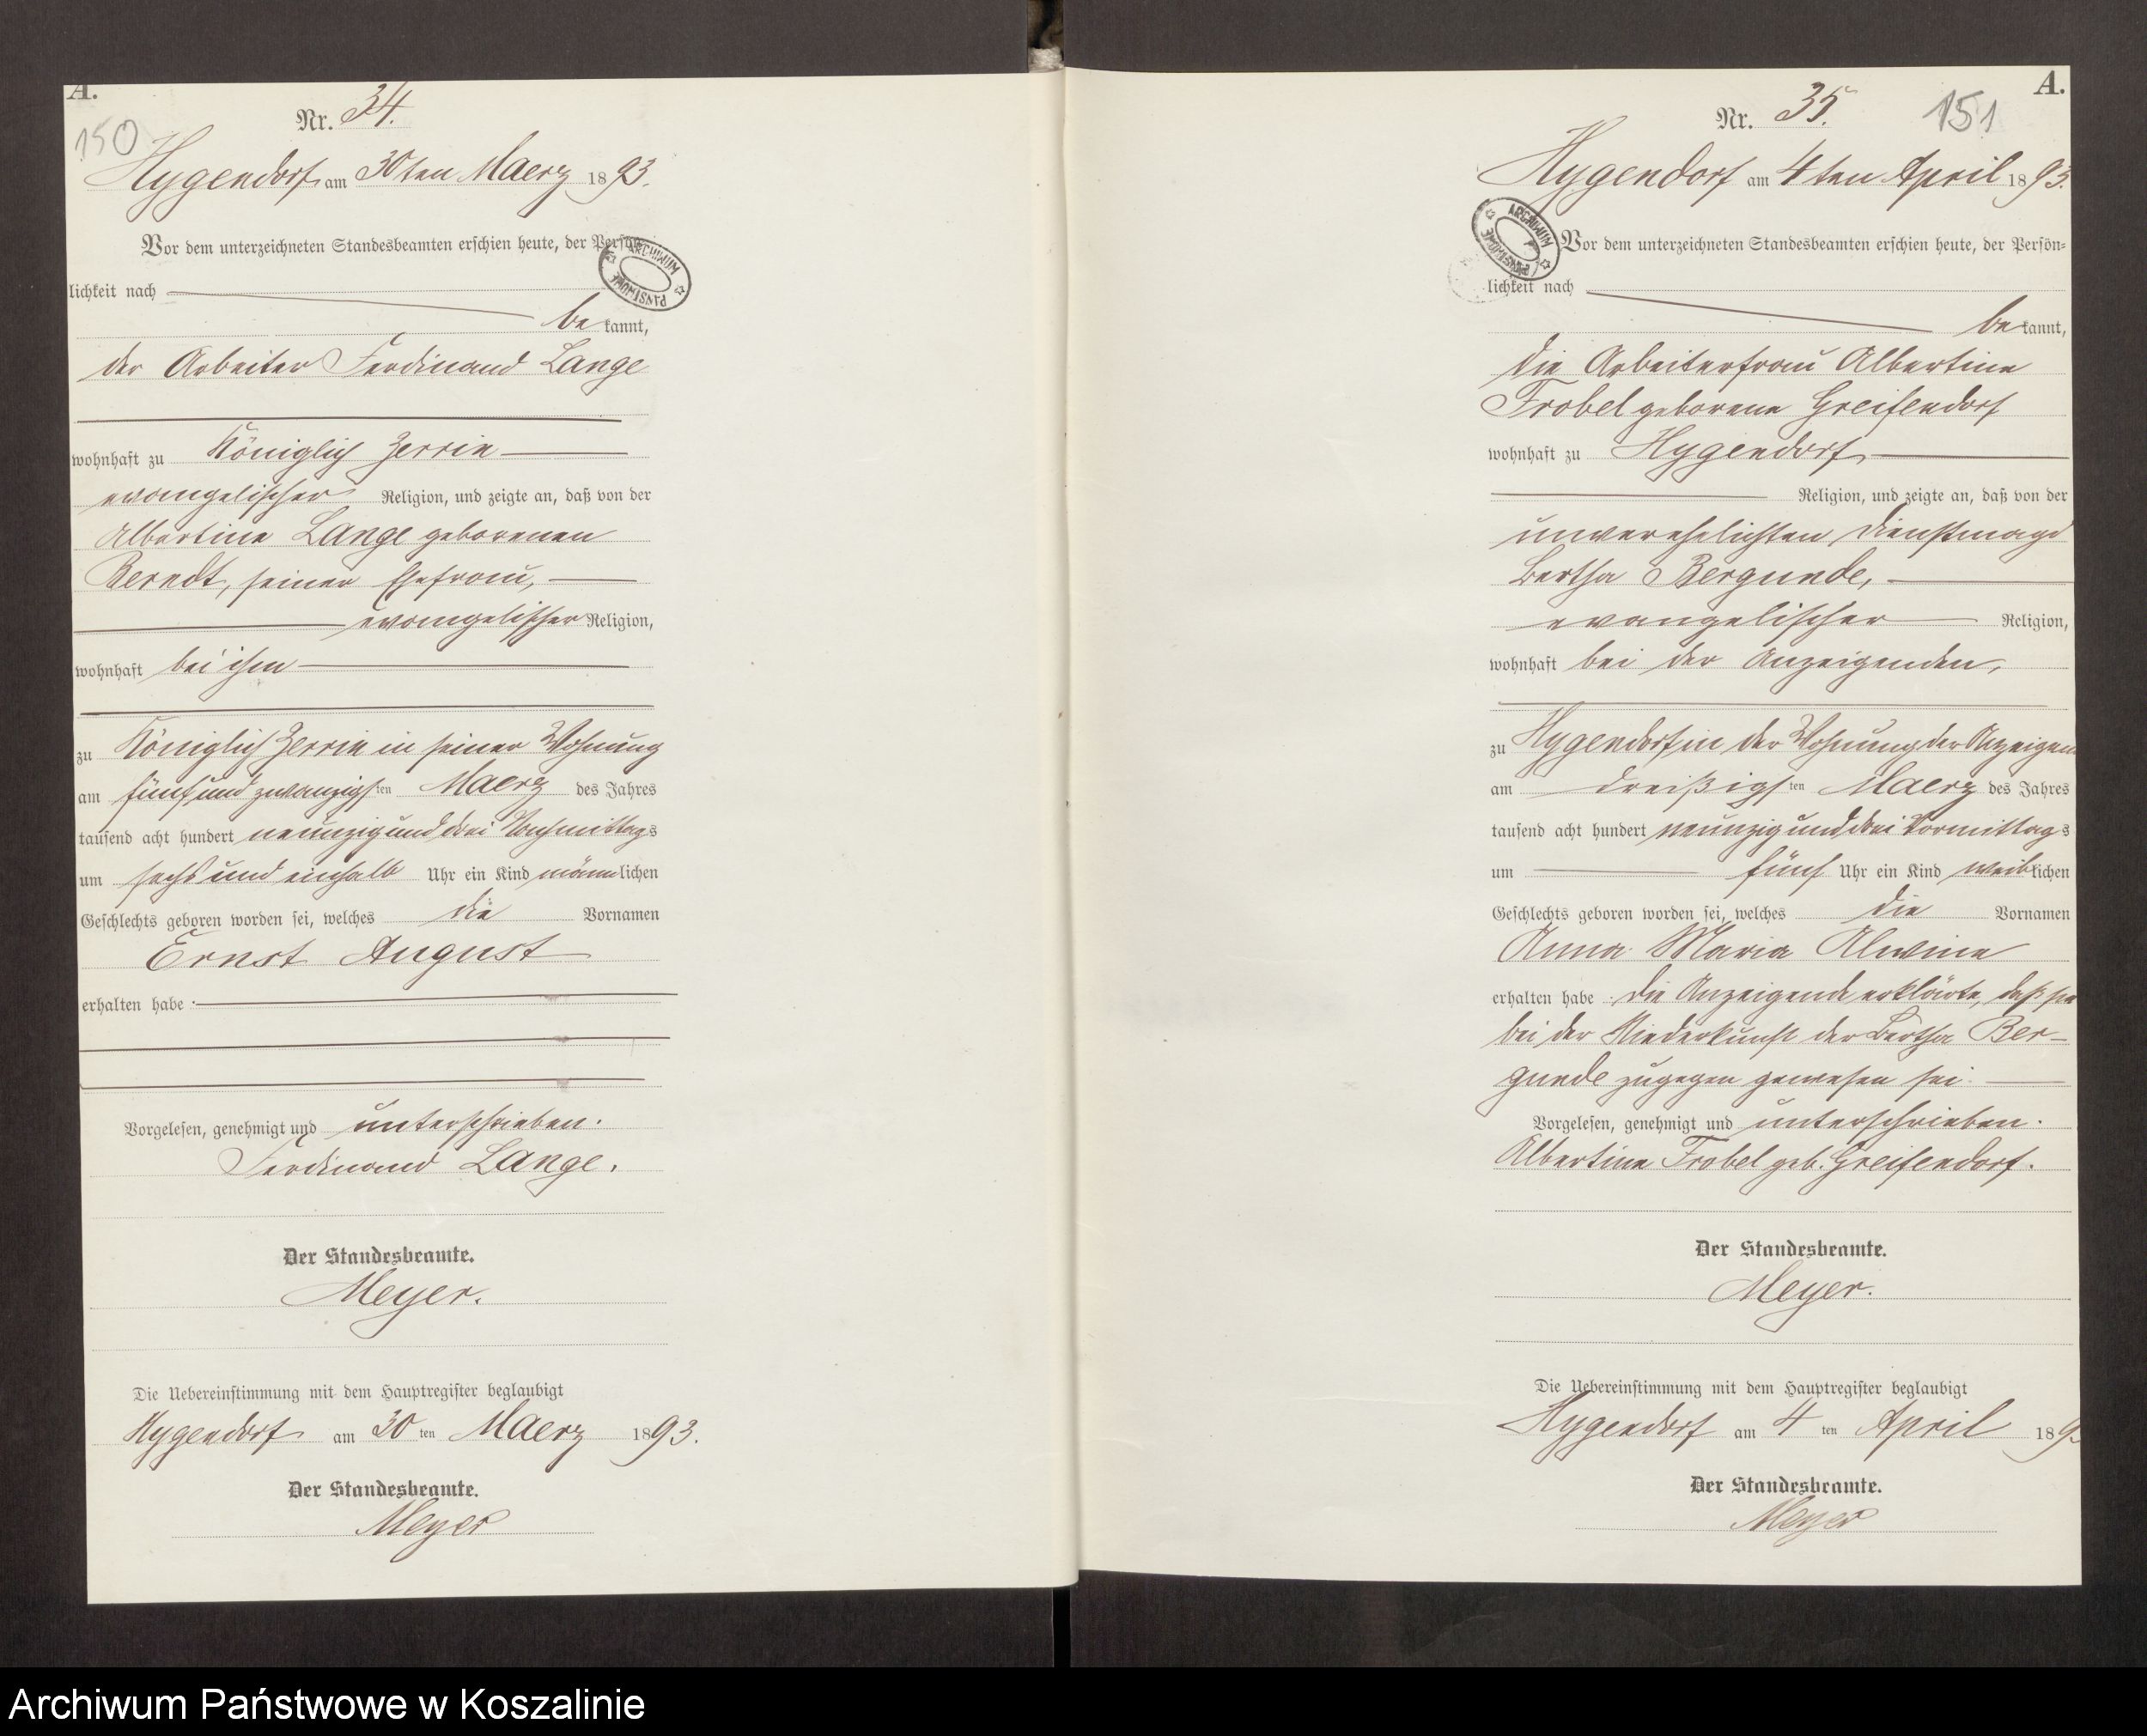 A.
150
Nr. 34.
Hygendorf am 30ten Maerz 1893.
Vor dem unterzeichneten Standesbeamten erschien heute, der Persön-
ARCHIWUM PAŃSTWOWE
lichkeit nach
be kannt,
der Arbeiter Ferdinand Lange
wohnhaft zu Königlich Zerrin
evangelischer Religion, und zeigte an, daß von der
Albertine Lange geborenen
Berndt, seiner Ehefrau,
evangelischer Religion,
wohnhaft bei ihm
zu Königlich Zerrin in seiner Wohnung
am fünf und zwanzigsten Maerz des Jahres
tausend acht hundert neunzig und drei Nachmittags
um sechs und einhalb Uhr ein Kind männlichen
Geschlechts geboren worden sei, welches die Vornamen
Ernst August
erhalten habe
Vorgelesen, genehmigt und unterschrieben.
Ferdinand Lange.
Der Standesbeamte.
Meyer.
Die Uebereinstimmung mit dem Hauptregister beglaubigt
Hygendorf am 30 ten Maerz 1893.
Der Standesbeamte.
Meyer
A.
Nr. 35. 151
Hygendorf am 4ten April 1893.
ARCHIWUM PAŃSTWOWE
Vor dem unterzeichneten Standesbeamten erschien heute, der Persön-
lichkeit nach
be kannt,
die Arbeiterfrau Albertine
Frobel geborene Greifendorf
wohnhaft zu Hygendorf
Religion, und zeigte an, daß von der
unverehelichten Dienstmagd
Bertha Bergunde,
evangelischer Religion,
wohnhaft bei der Anzeigenden,
zu Hygendorf in der Wohnung der Anzeigen
am dreißigsten Maerz des Jahres
tausend acht hundert neunzig und drei Vormittags
um fünf Uhr ein Kind weiblichen
Geschlechts geboren worden sei, welches die Vornamen
Anna Maria Alwine
erhalten habe. Die Anzeigende erklärte, daß sie
bei der Niederkunft der Bertha Ber-
gunde zugegen gewesen sei.
Vorgelesen, genehmigt und unterschrieben.
Albertine Frobel geb. Greifendorf.
Der Standesbeamte.
Meyer.
Die Uebereinstimmung mit dem Hauptregister beglaubigt
Hygendorf am 4 ten April 189
Der Standesbeamte.
Meyer
Archiwum Państwowe w Koszalinie